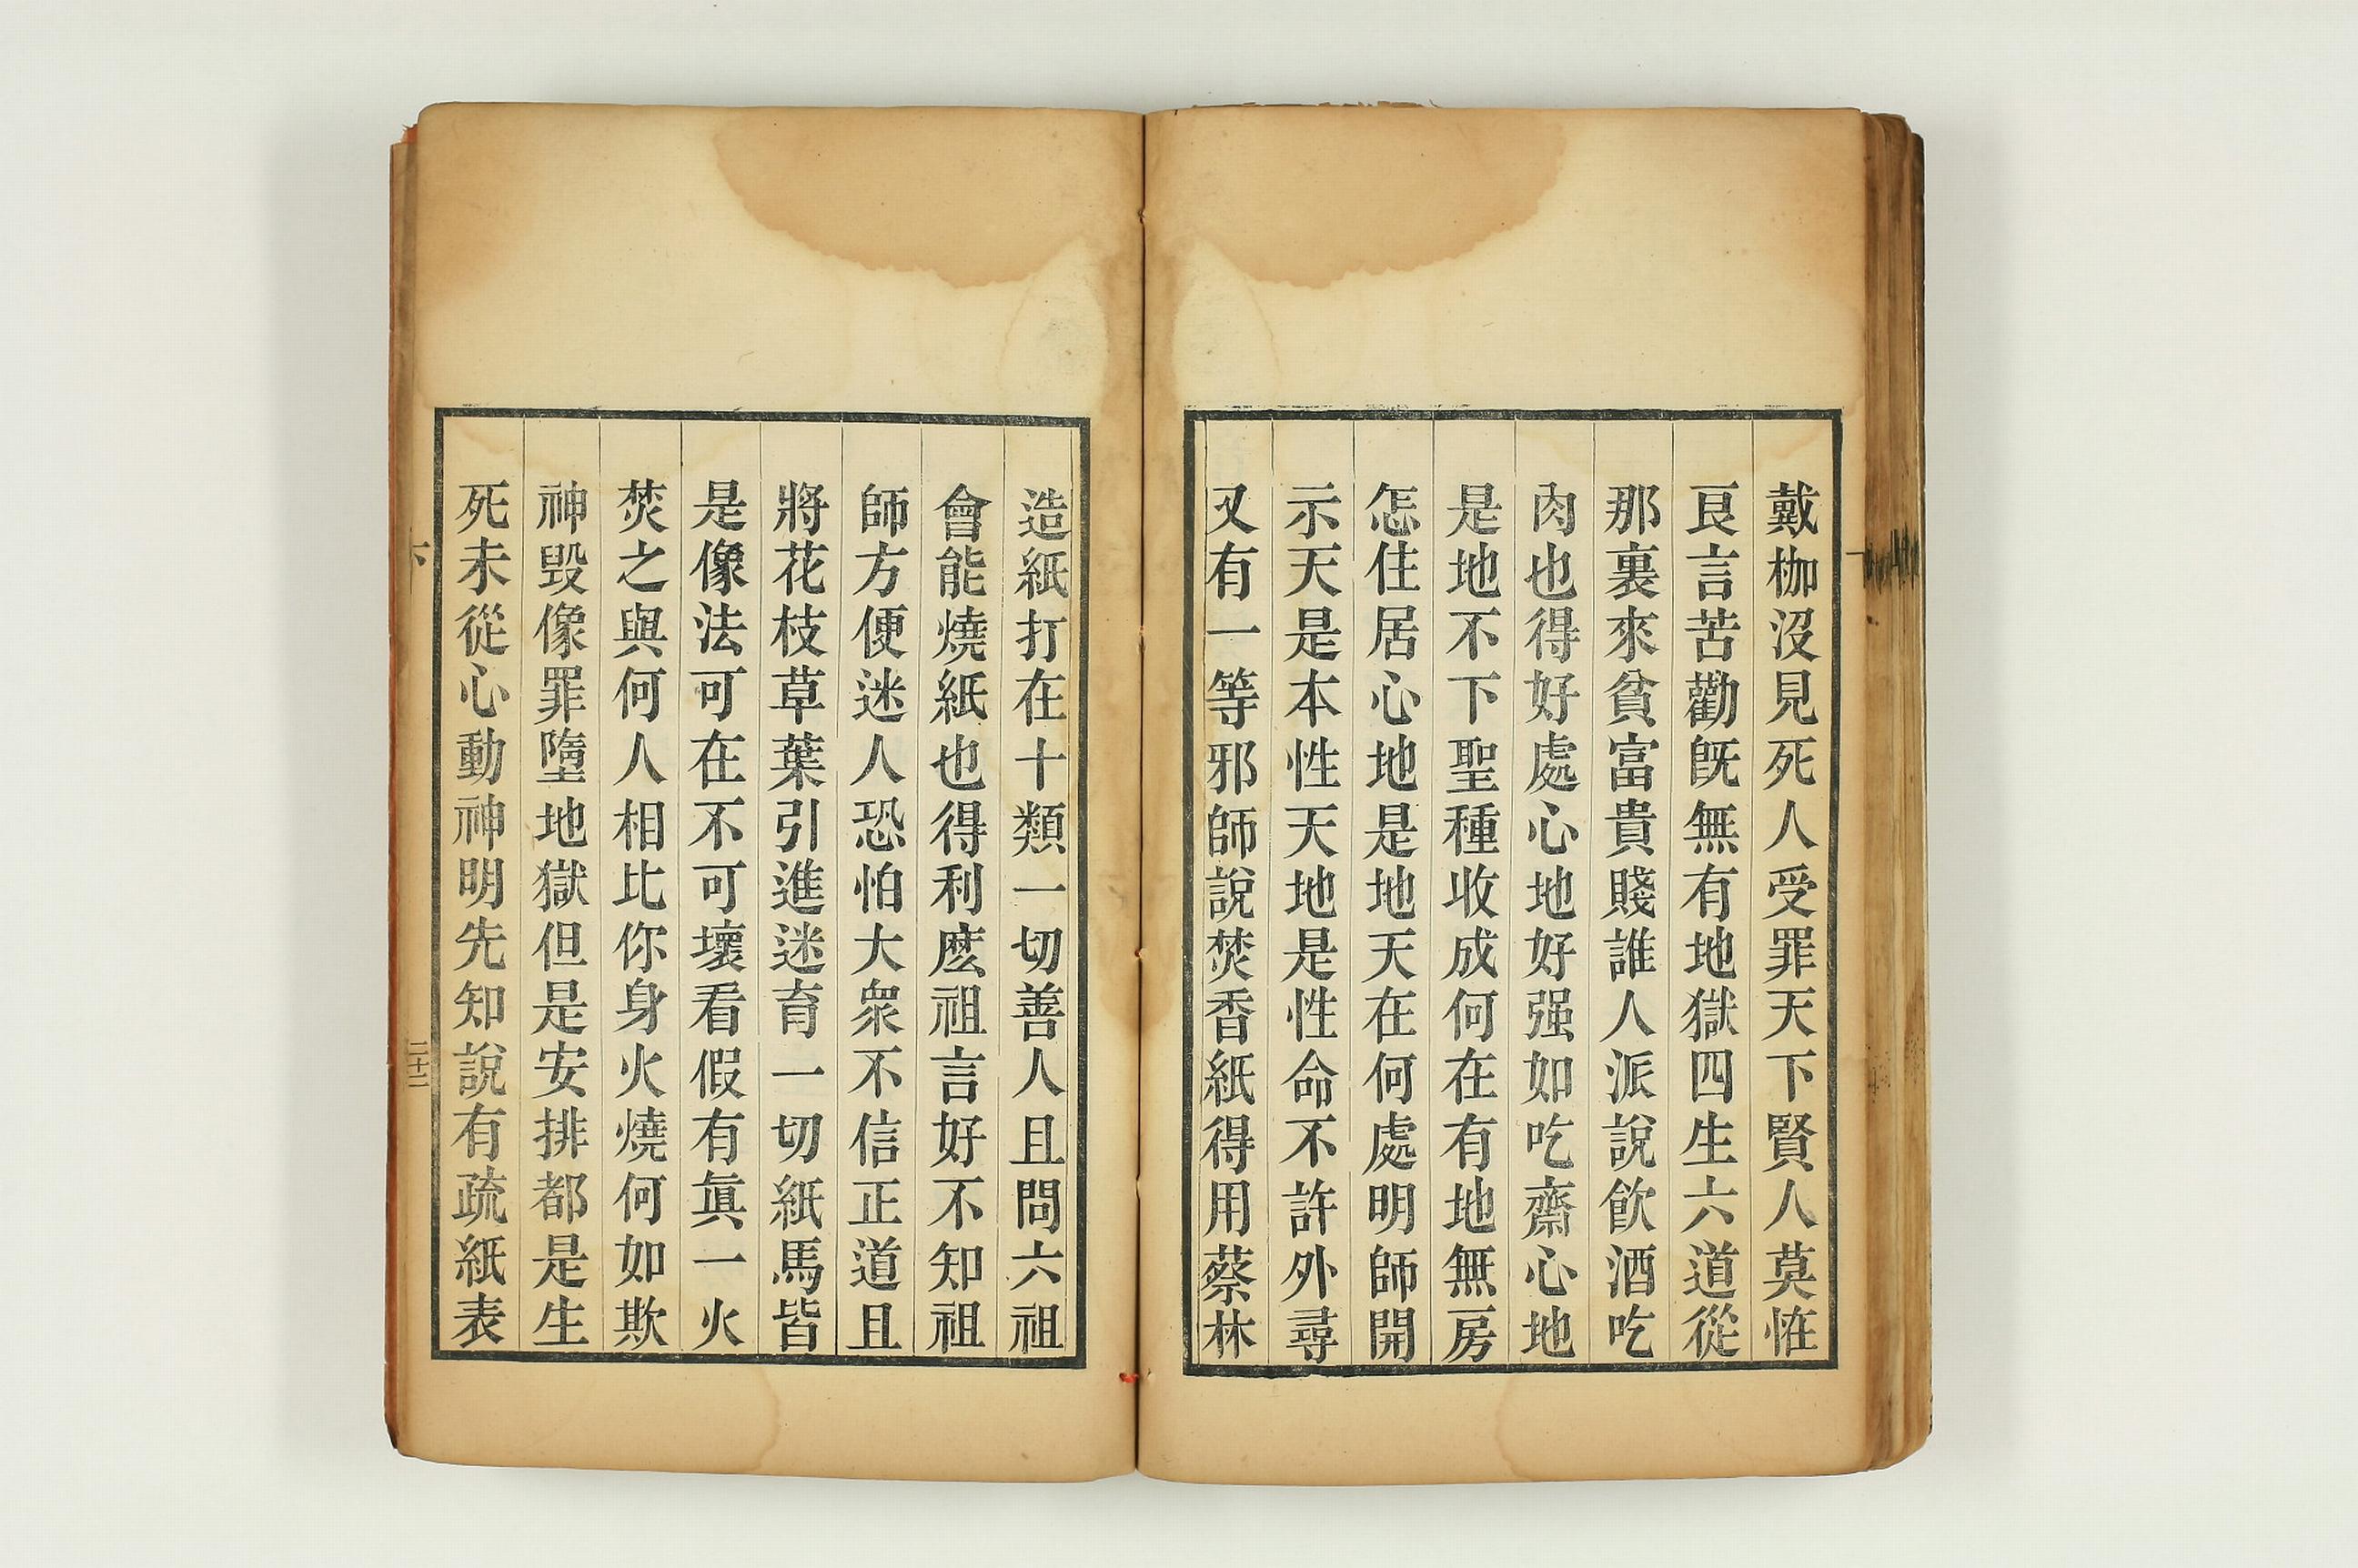 戴枷沒見死人受罪天下賢人莫恠
良言苦勸旣無有地獄四生六道從
那裏來貧富貴賤誰人派說飮酒吃
肉也得好處心地好强如吃齋心地
是地不下聖種收成何在有地無房
怎住居心地是地天在何處明師開
示天是本性天地是性命不許外尋
又有一等邪師說焚香紙得用蔡林
造紙打在十類一切善人且問六祖
會能燒紙也得利麽祖言好不知祖
師方便迷人恐怕大衆不信正道且
將花枝草葉引進迷育一切紙馬皆
是像法可在不可壞看假有眞一火
焚之與何人相比你身火燒何如欺
神毀像罪墮地獄但是安排都是生
死未從心動神明先知說有疏紙表
下
二十二